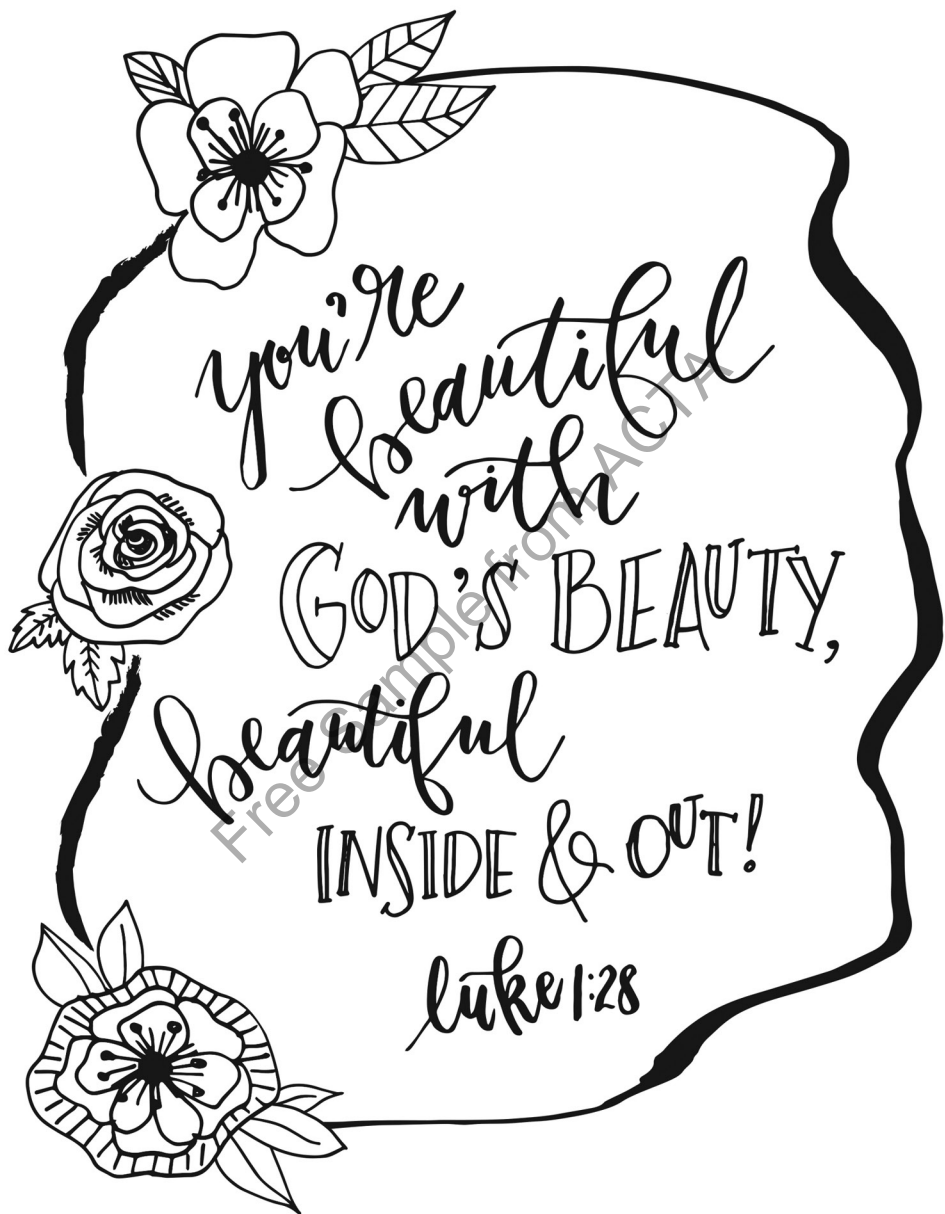 you're
beautiful
with
GOD'S BEAUTY,
beautiful
INSIDE & OUT!
luke 1:28
Free Sample from ACTA